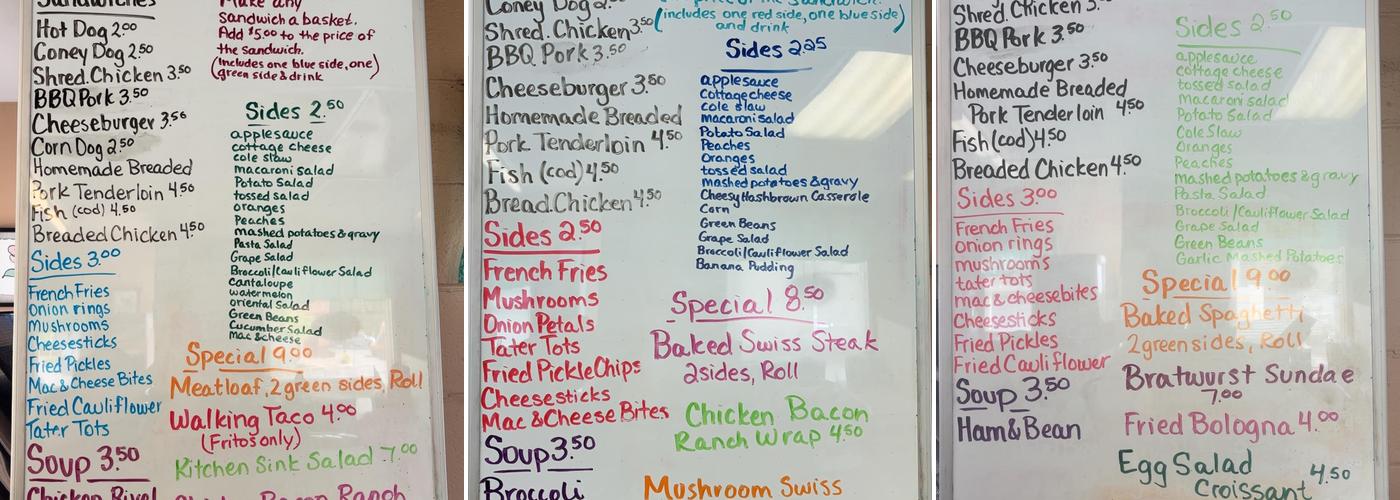 Sandwiches
Hot Dog 2.00
Coney Dog 2.50
Shred. Chicken 3.50
BBQ Pork 3.50
Cheeseburger 3.50
Corn Dog 2.50
Homemade Breaded
Pork Tenderloin 4.50
Fish (cod) 4.50
Breaded Chicken 4.50
Sides 3.00
French Fries
Onion rings
Mushrooms
Cheesesticks
Fried Pickles
Mac & Cheese Bites
Fried Cauliflower
Tater Tots
Soup 3.50
Make any
Sandwich a basket.
Add $5.00 to the price of
the sandwich.
(Includes one blue side, one
green side & drink)
Sides 2.50
applesauce
cottage cheese
cole slaw
macaroni salad
Potato Salad
tossed salad
oranges
Peaches
mashed potatoes & gravy
Pasta Salad
Grape Salad
Broccoli/Cauliflower Salad
Cantaloupe
watermelon
oriental Salad
Green Beans
Cucumber Salad
Mac & cheese
Special 9.00
Meatloaf, 2 green sides, Roll
Walking Taco 4.00
(Fritos only)
Kitchen Sink Salad 7.00
Bacon Ranch
Coney Dog 2.
Shred. Chicken 3.50
BBQ Pork 3.50
Cheeseburger 3.50
Homemade Breaded
Pork Tenderloin 4.50
Fish (cod) 4.50
Bread. Chicken 4.50
Sides 2.50
French Fries
Mushrooms
Onion Petals
Tater Tots
Fried Pickle Chips
Cheesesticks
Mac & Cheese Bites
Soup 3.50
Broccoli
(includes one red side, one blue side
and drink)
Sides 2.25
applesauce
Cottage cheese
cole slaw
macaroni salad
Potato Salad
Peaches
Oranges
tossed salad
Mashed potatoes & gravy
Cheesy Hashbrown Casserole
Corn
Green Beans
Grape Salad
Broccoli/Cauliflower Salad
Banana Pudding
Special 8.50
Baked Swiss Steak
2 sides, Roll
Chicken Bacon
Ranch Wrap 4.50
Mushroom Swiss
Shred. Chicken 3.
BBQ Pork 3.50
Cheeseburger 3.50
Homemade Breaded
Pork Tenderloin 4.50
Fish (cod) 4.50
Breaded Chicken 4.50
Sides 3.00
French Fries
onion rings
mushrooms
tater tots
mac & cheese bites
Cheesesticks
Fried Pickles
Fried Cauliflower
Soup 3.50
Ham & Bean
Sides 2.50
applesauce
cottage cheese
tossed salad
Macaroni salad
Potato Salad
Cole Slaw
Oranges
Peaches
mashed potatoes & gravy
Pasta Salad
Broccoli/Cauliflower Salad
Grape Salad
Green Beans
Garlic Mashed Potatoes
Special 9.00
Baked Spaghetti
2 green sides, Roll
Bratwurst Sundae
7.00
Fried Bologna 4.00
Egg Salad
Croissant 4.50